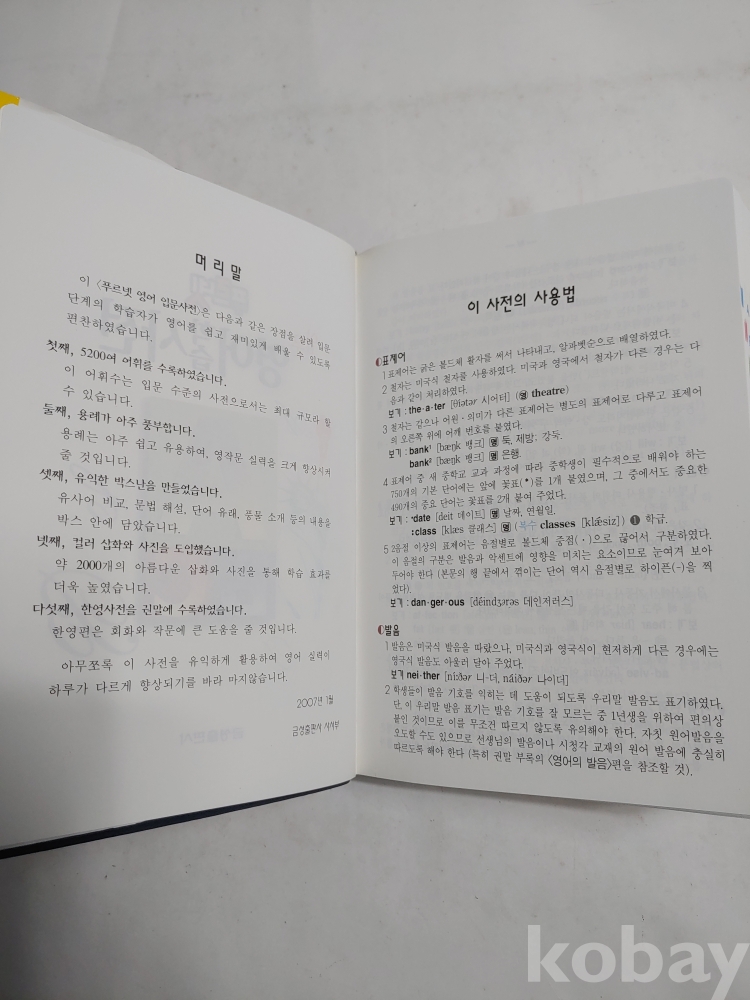 머리말
이 〈푸르넷 영어 입문사전〉은 다음과 같은 장점을 살려 입문
단계의 학습자가 영어를 쉽고 재미있게 배울 수 있도록
편찬하였습니다.
첫째, 5200여 어휘를 수록하였습니다.
이 어휘수는 입문 수준의 사전으로서는 최대 규모라 할
수 있습니다.
둘째, 용례가 아주 풍부합니다.
용례는 아주 쉽고 유용하여, 영작문 실력을 크게 향상시켜
줄 것입니다.
셋째, 유익한 박스난을 만들었습니다.
유사어 비교, 문법 해설, 단어 유래, 풍물 소개 등의 내용을
박스 안에 담았습니다.
넷째, 컬러 삽화와 사진을 도입했습니다.
약 2000개의 아름다운 삽화와 사진을 통해 학습 효과를
더욱 높였습니다.
다섯째, 한영사전을 권말에 수록하였습니다.
한영편은 회화와 작문에 큰 도움을 줄 것입니다.
아무쪼록 이 사전을 유익하게 활용하여 영어 실력이
하루가 다르게 향상되기를 바라 마지않습니다.
2007년 1월
금성출판사 사서부
이 사전의 사용법
표제어
1 표제어는 굵은 볼드체 활자를 써서 나타내고, 알파벳순으로 배열하였다.
2 철자는 미국식 철자를 사용하였다. 미국과 영국에서 철자가 다른 경우는 다
음과 같이 처리하였다.
보기 : the·a·ter [θíətər 시어터] (영 theatre)
3 철자는 같으나 어원·의미가 다른 표제어는 별도의 표제어로 다루고 표제어
의 오른쪽 위에 어깨 번호를 붙였다.
보기 : bank¹ [bæŋk 뱅크] 명 둑, 제방; 강둑.
bank² [bæŋk 뱅크] 명 은행.
4 표제어 중 새 중학교 교과 과정에 따라 중학생이 필수적으로 배워야 하는
750개의 기본 단어에는 앞에 꽃표(*)를 1개 붙였으며, 그 중에서도 중요한
490개의 중요 단어에는 꽃표를 2개 붙여 주었다.
보기 : *date [deit 데이트] 명 날짜, 연월일.
:class [klæs 클래스] 명 (복수 classes [klǽsiz]) ❶ 학급.
5 2음절 이상의 표제어는 음절별로 볼드체 중점(·)으로 끊어서 구분하였다.
이 음절의 구분은 발음과 악센트에 영향을 미치는 요소이므로 눈여겨 보아
두어야 한다 (본문의 행 끝에서 꺾이는 단어 역시 음절별로 하이픈(-)을 찍
었다).
보기 : dan·ger·ous [déindʒərəs 데인저러스]
발음
1 발음은 미국식 발음을 따랐으나, 미국식과 영국식이 현저하게 다른 경우에는
영국식 발음도 아울러 달아 주었다.
보기 nei·ther [níːðər 니-더, náiðər 나이더]
2 학생들이 발음 기호를 익히는 데 도움이 되도록 우리말 발음도 표기하였다.
단, 이 우리말 발음 표기는 발음 기호를 잘 모르는 중 1년생을 위하여 편의상
붙인 것이므로 이를 무조건 따르지 않도록 유의해야 한다. 자칫 원어발음을
오도할 수도 있으므로 선생님의 발음이나 시청각 교재의 원어 발음에 충실히
따르도록 해야 한다 (특히 권말 부록의 〈영어의 발음〉편을 참조할 것).
kobay